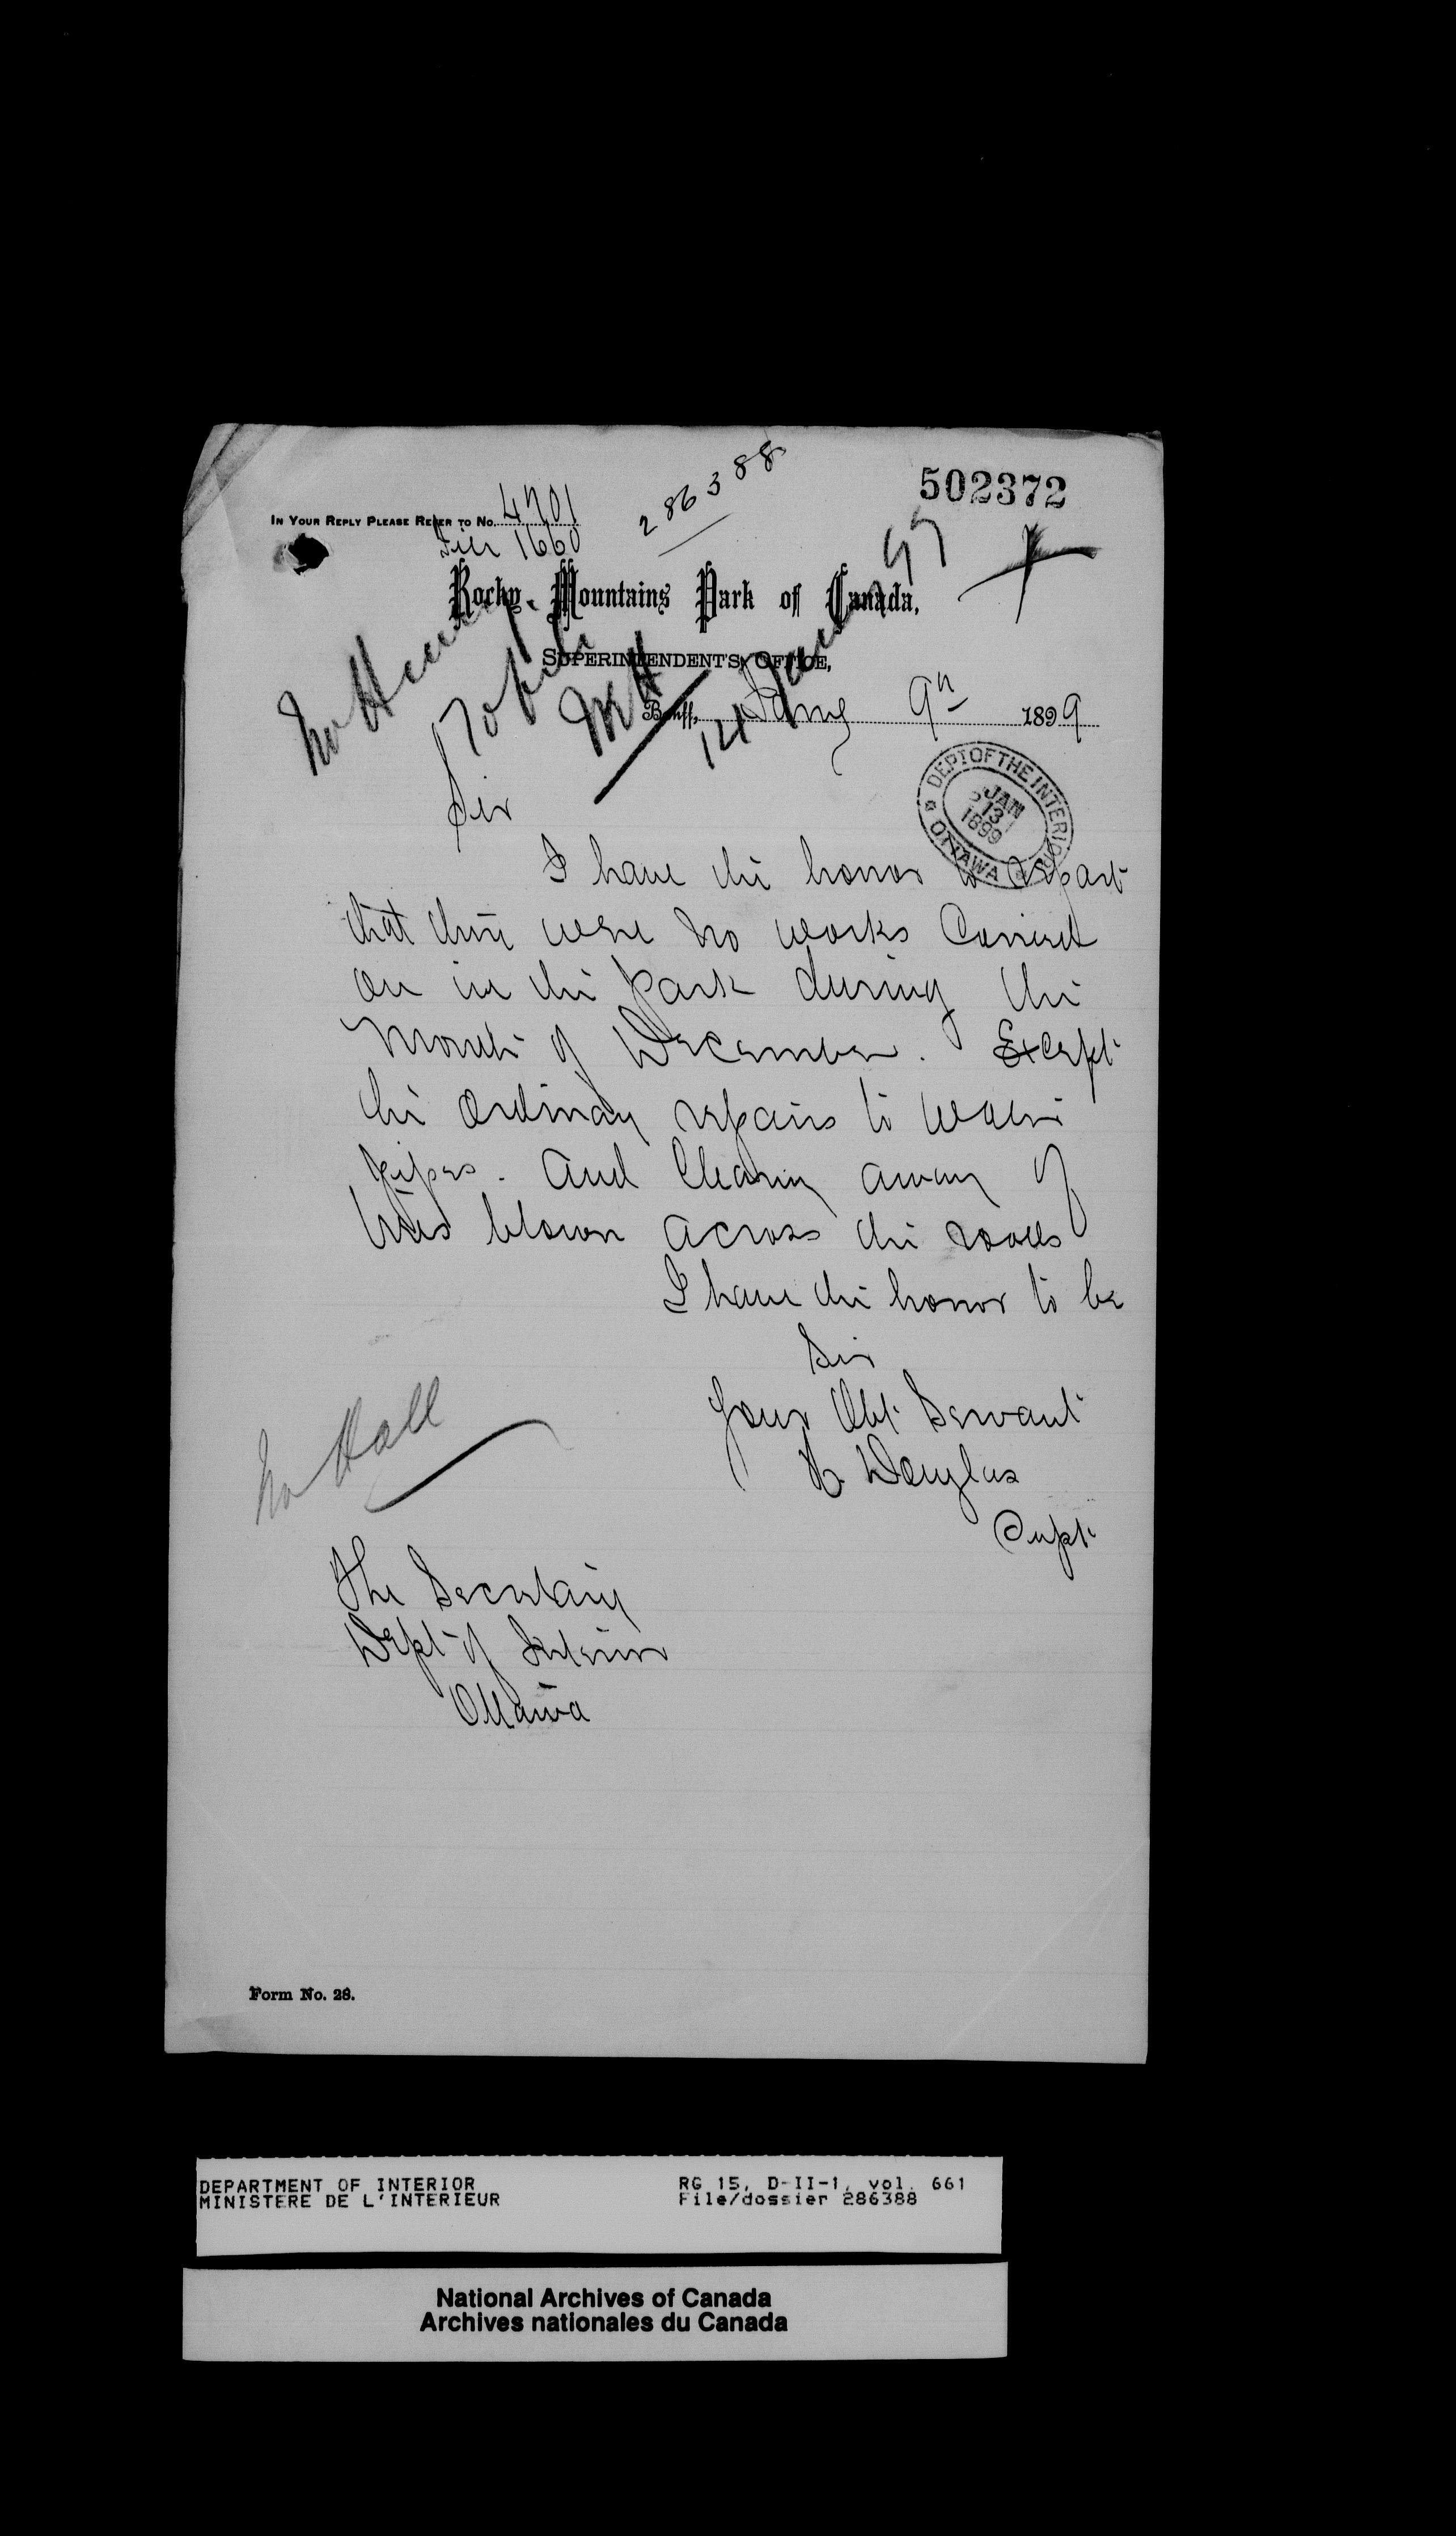 502372
286388
IN YOUR REPLY PLEASE REFER TO No. 4701
File 1660
Rocky Mountains Park of Canada,
SUPERINTENDENT'S OFFICE,
Banff, Jany 9th 1899
14 Jany 99
DEPT OF THE INTERIOR
JAN
13
1899
OTTAWA
Sir
I have the honor to report
that there were no works Carried
on in the park during the
Month of December. Except
the Ordinary repairs to water
pipes. And Clearing away of
trees blown across the roads
I have the honor to be
Sir
Your Obt Servant
H Douglas
Supt
Mr Hall
The Secretary
Dept of Interior
Ottawa
Form No. 28.
DEPARTMENT OF INTERIOR RG 15, D-II-1, vol. 661
MINISTERE DE L'INTERIEUR File/dossier 286388
National Archives of Canada
Archives nationales du Canada